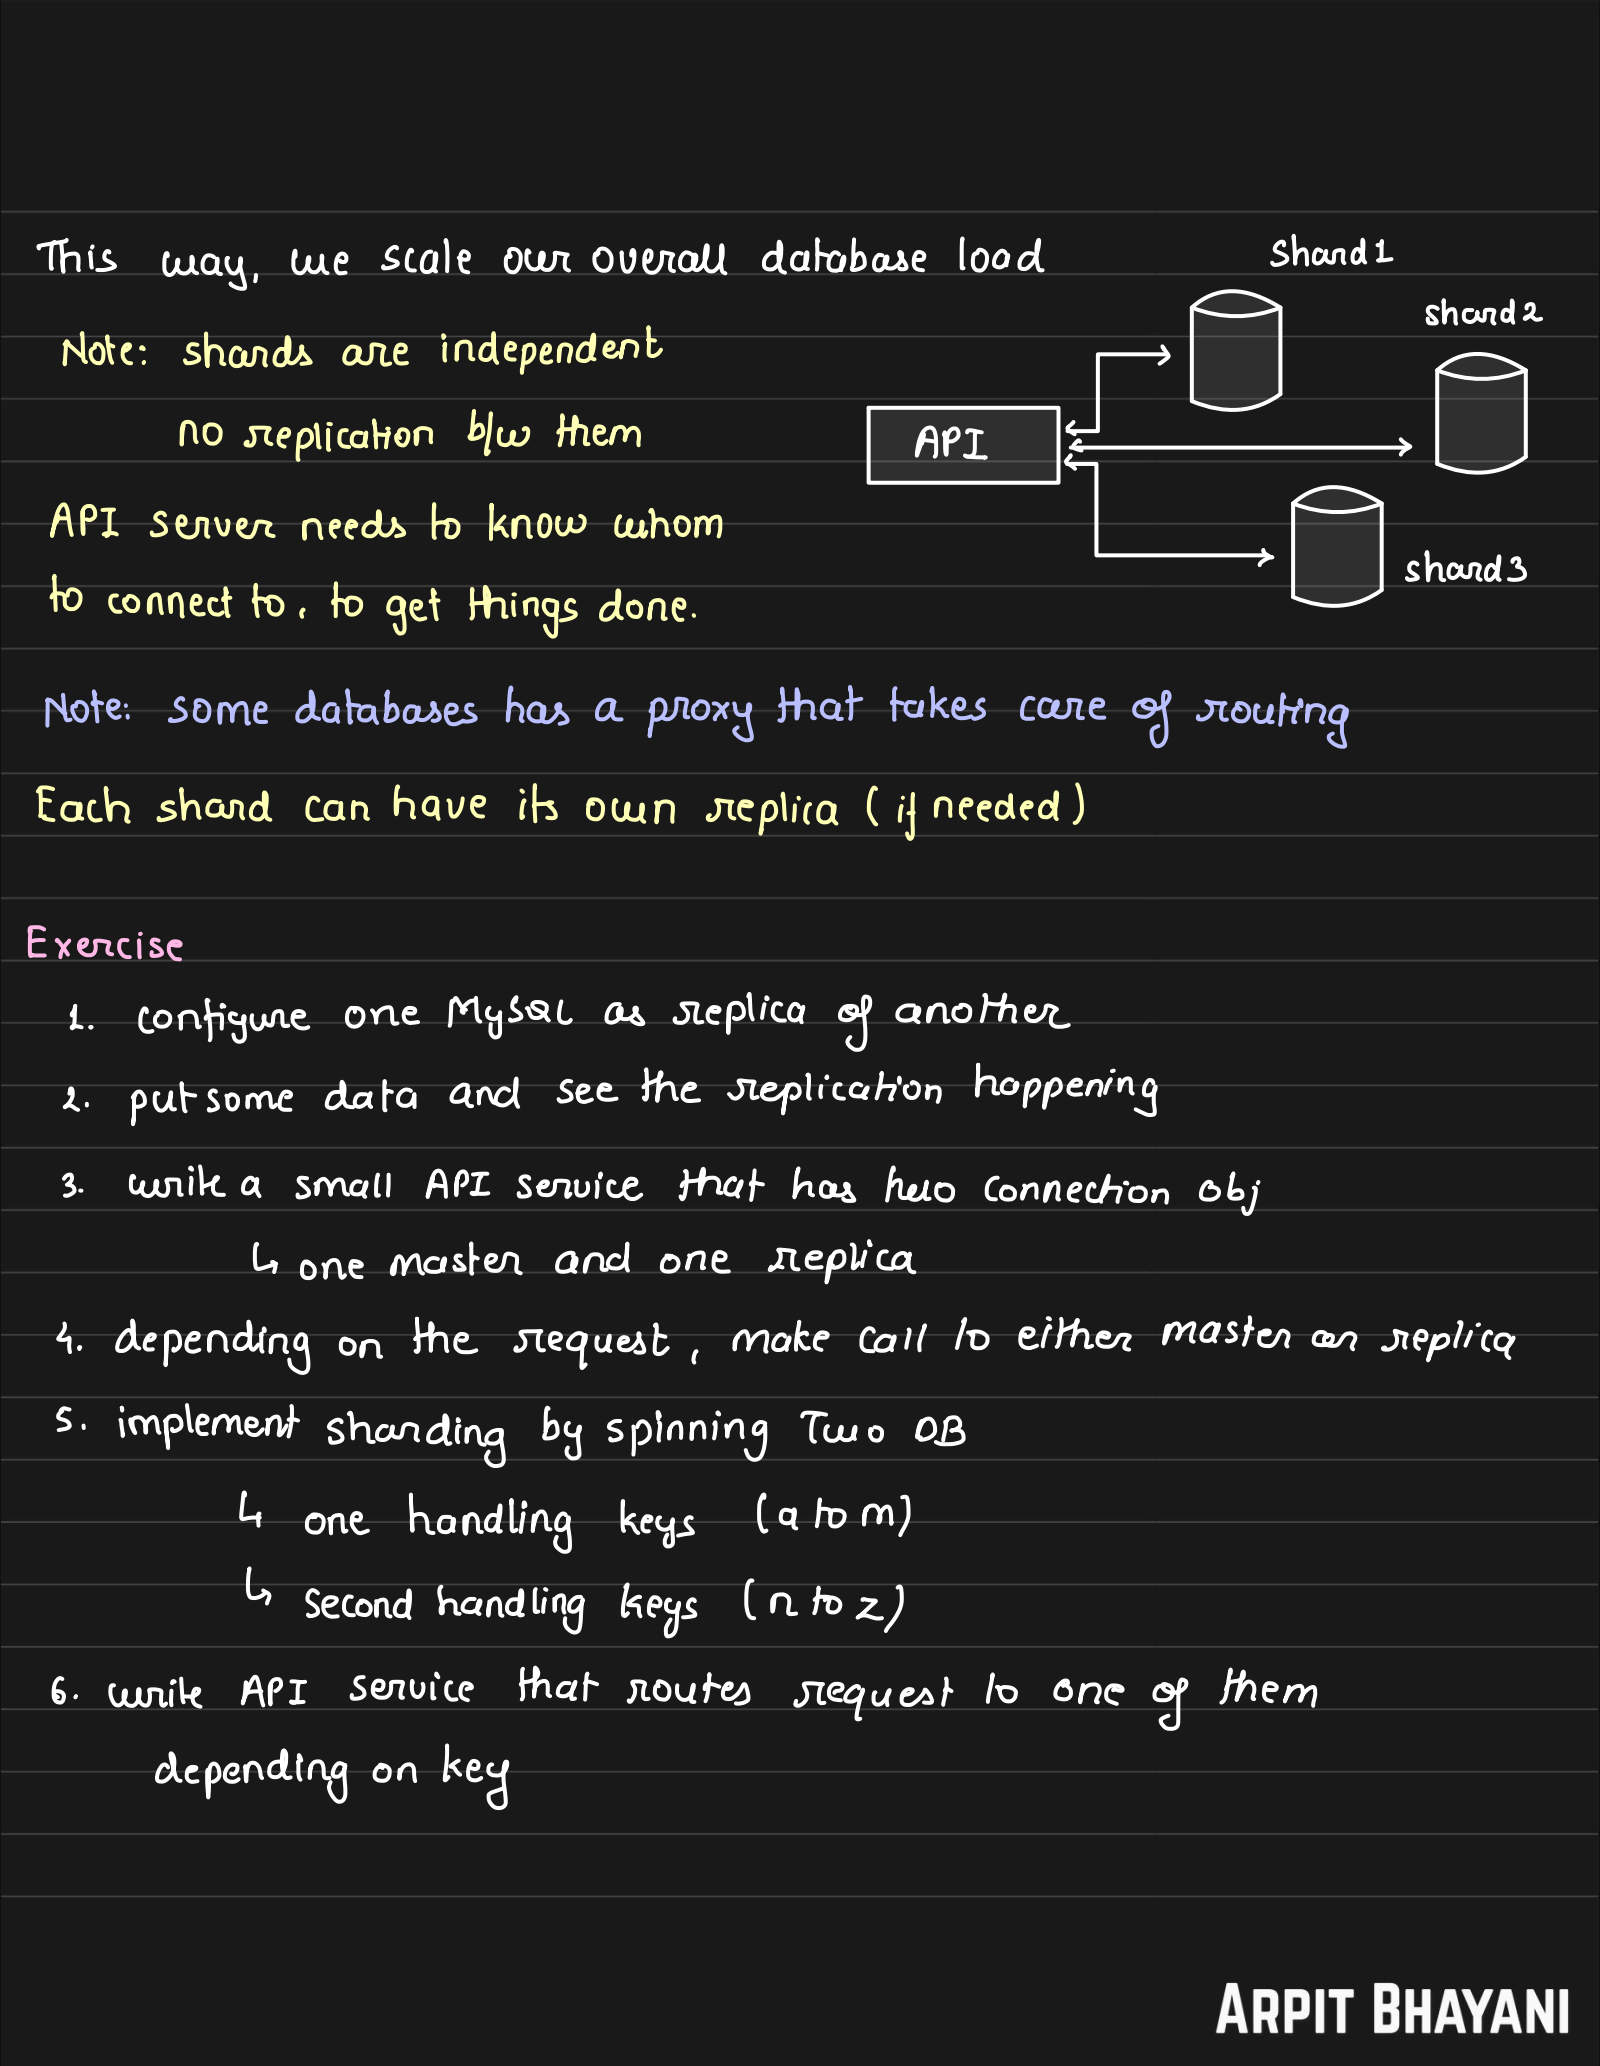 This way, we scale our overall database load
Shard1
shard2
Note: shards are independent
no replication b/w them
API
API server needs to know whom
to connect to, to get things done.
shard3
Note: some databases has a proxy that takes care of routing
Each shard can have its own replica (if needed)
Exercise
1. configure one MySQL as replica of another
2. put some data and see the replication happening
3. write a small API service that has two connection obj
↳ one master and one replica
4. depending on the request, make call to either master or replica
5. implement sharding by spinning Two DB
↳ one handling keys (a to m)
↳ second handling keys (n to z)
6. write API service that routes request to one of them
depending on key
ARPIT BHAYANI